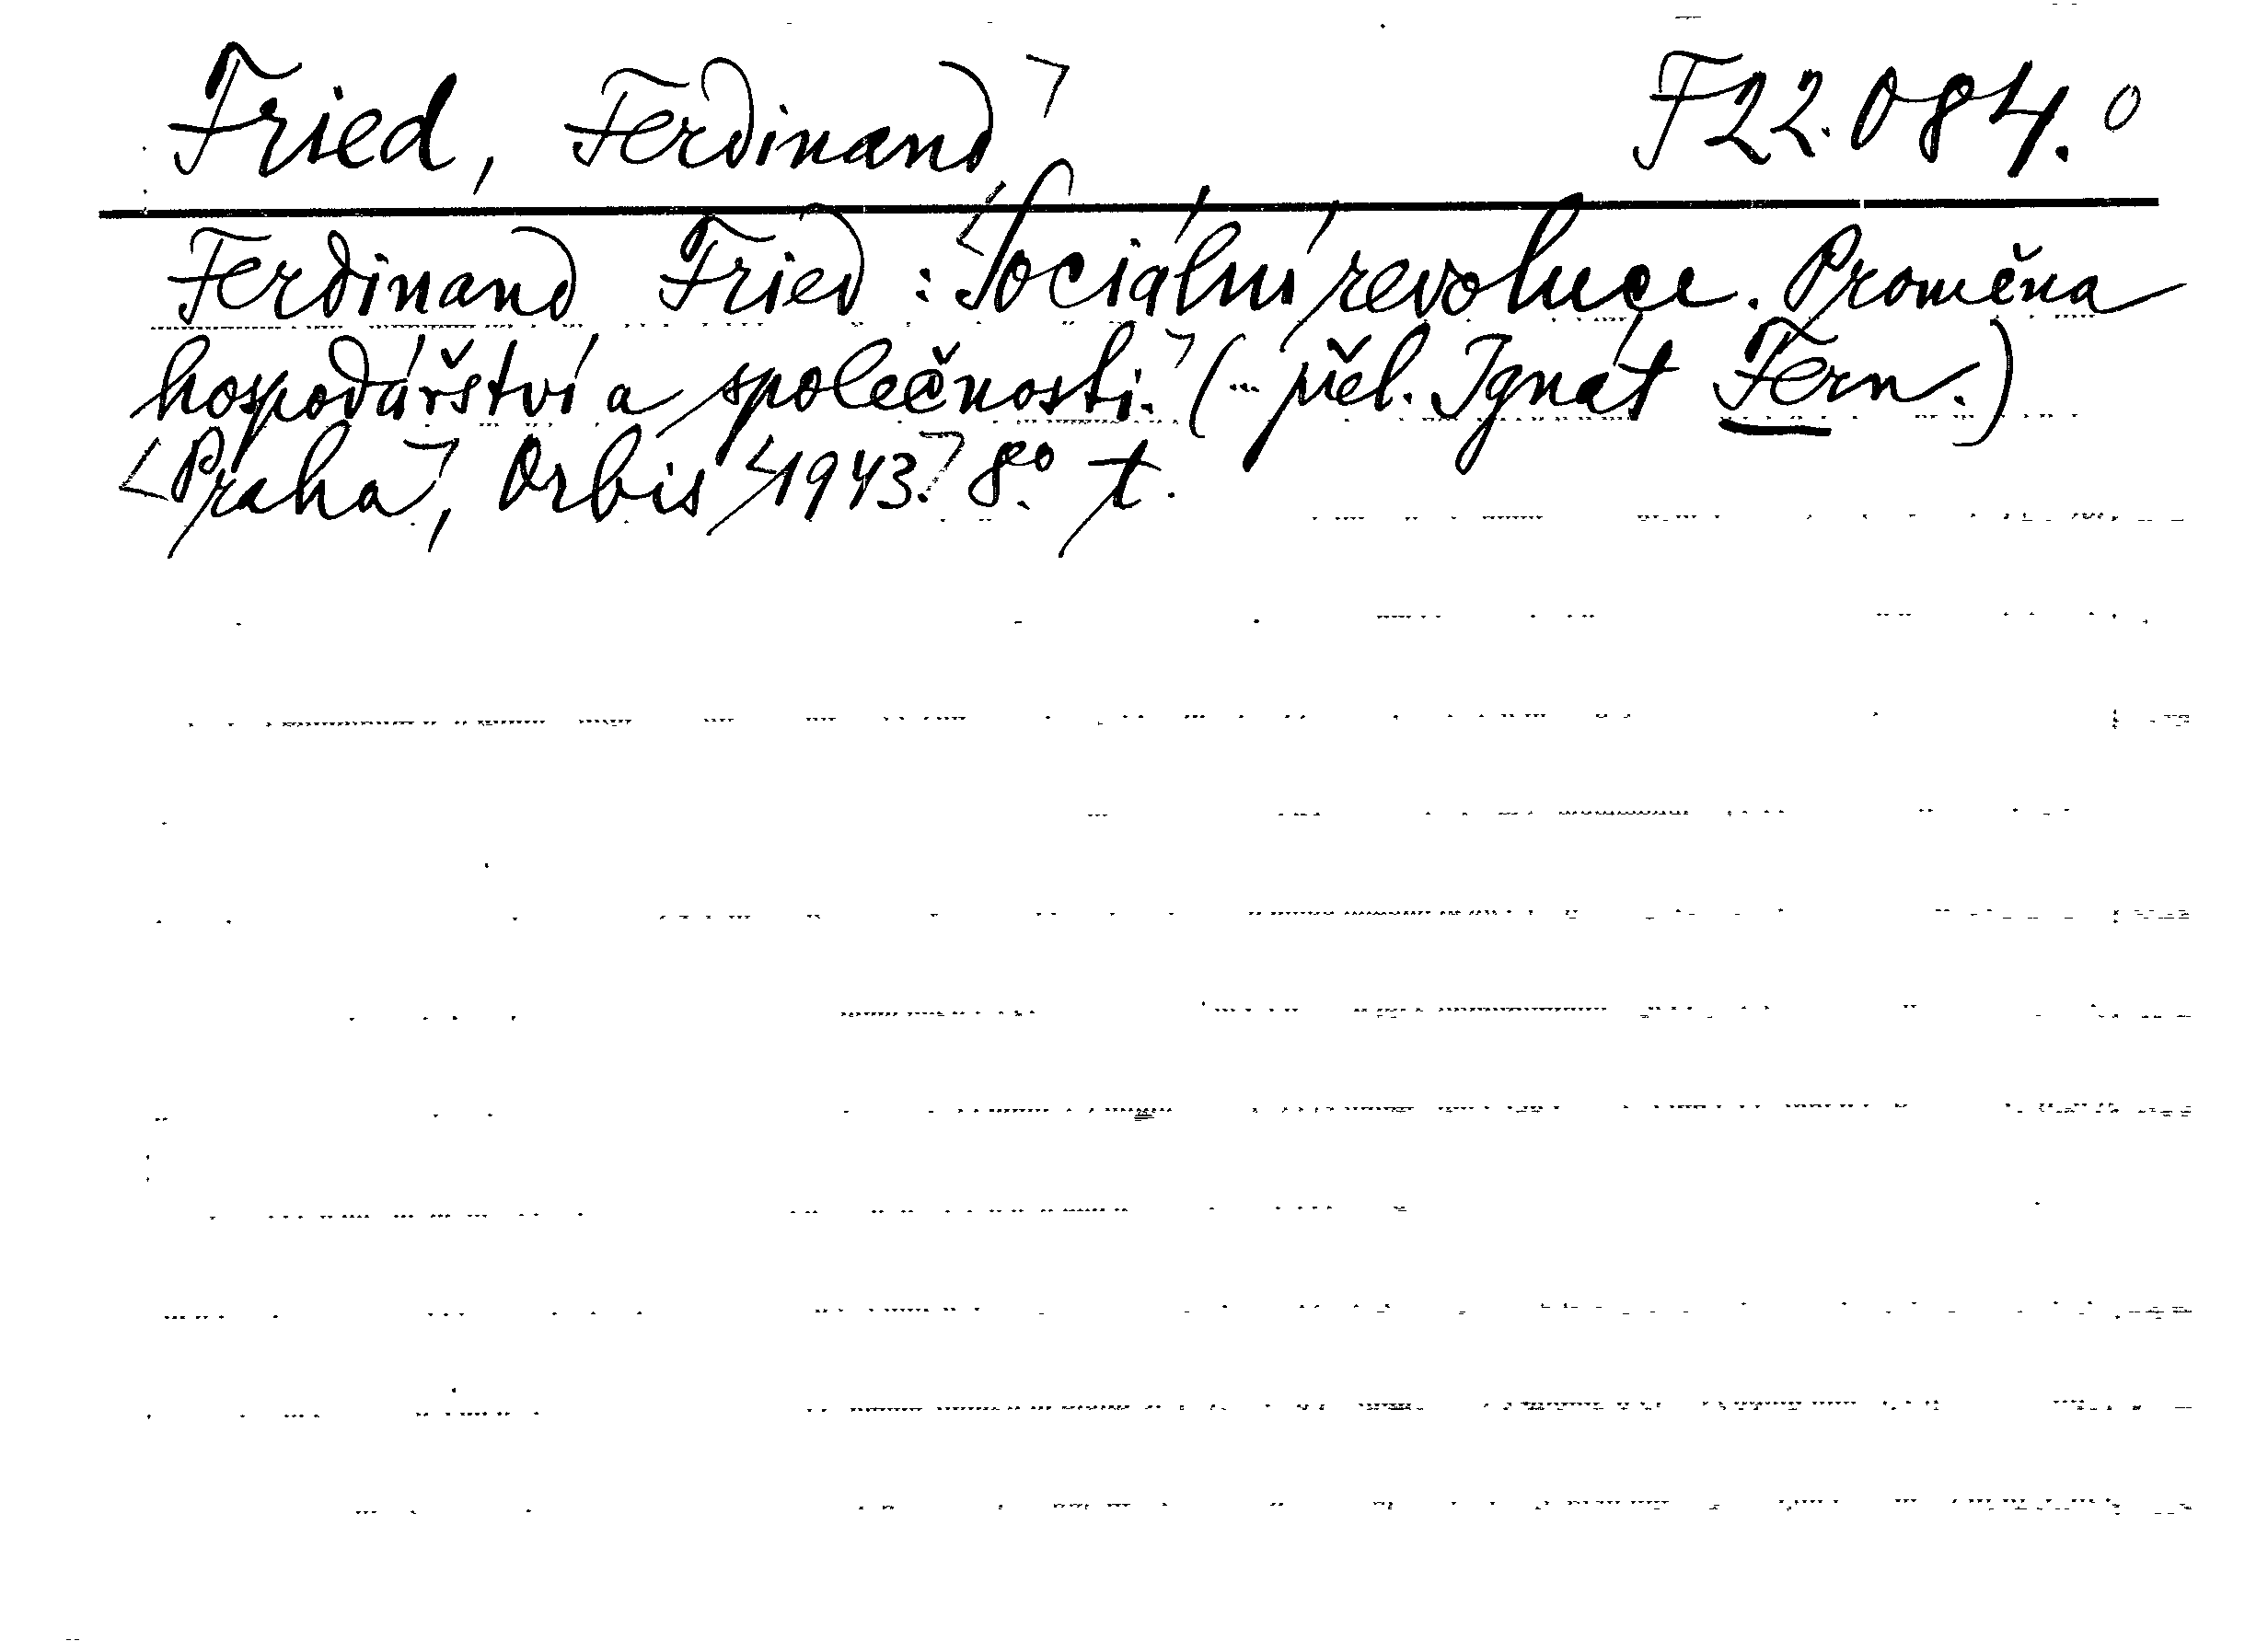 Fried, Ferdinand ┐ F 22.084. o
Ferdinand Fried: <Sociální revoluce. Proměna
hospodářství a společnosti.┐ (... přel. Ignát Fern.)
<Praha┐, Orbis <1943.┐ 8°. t.